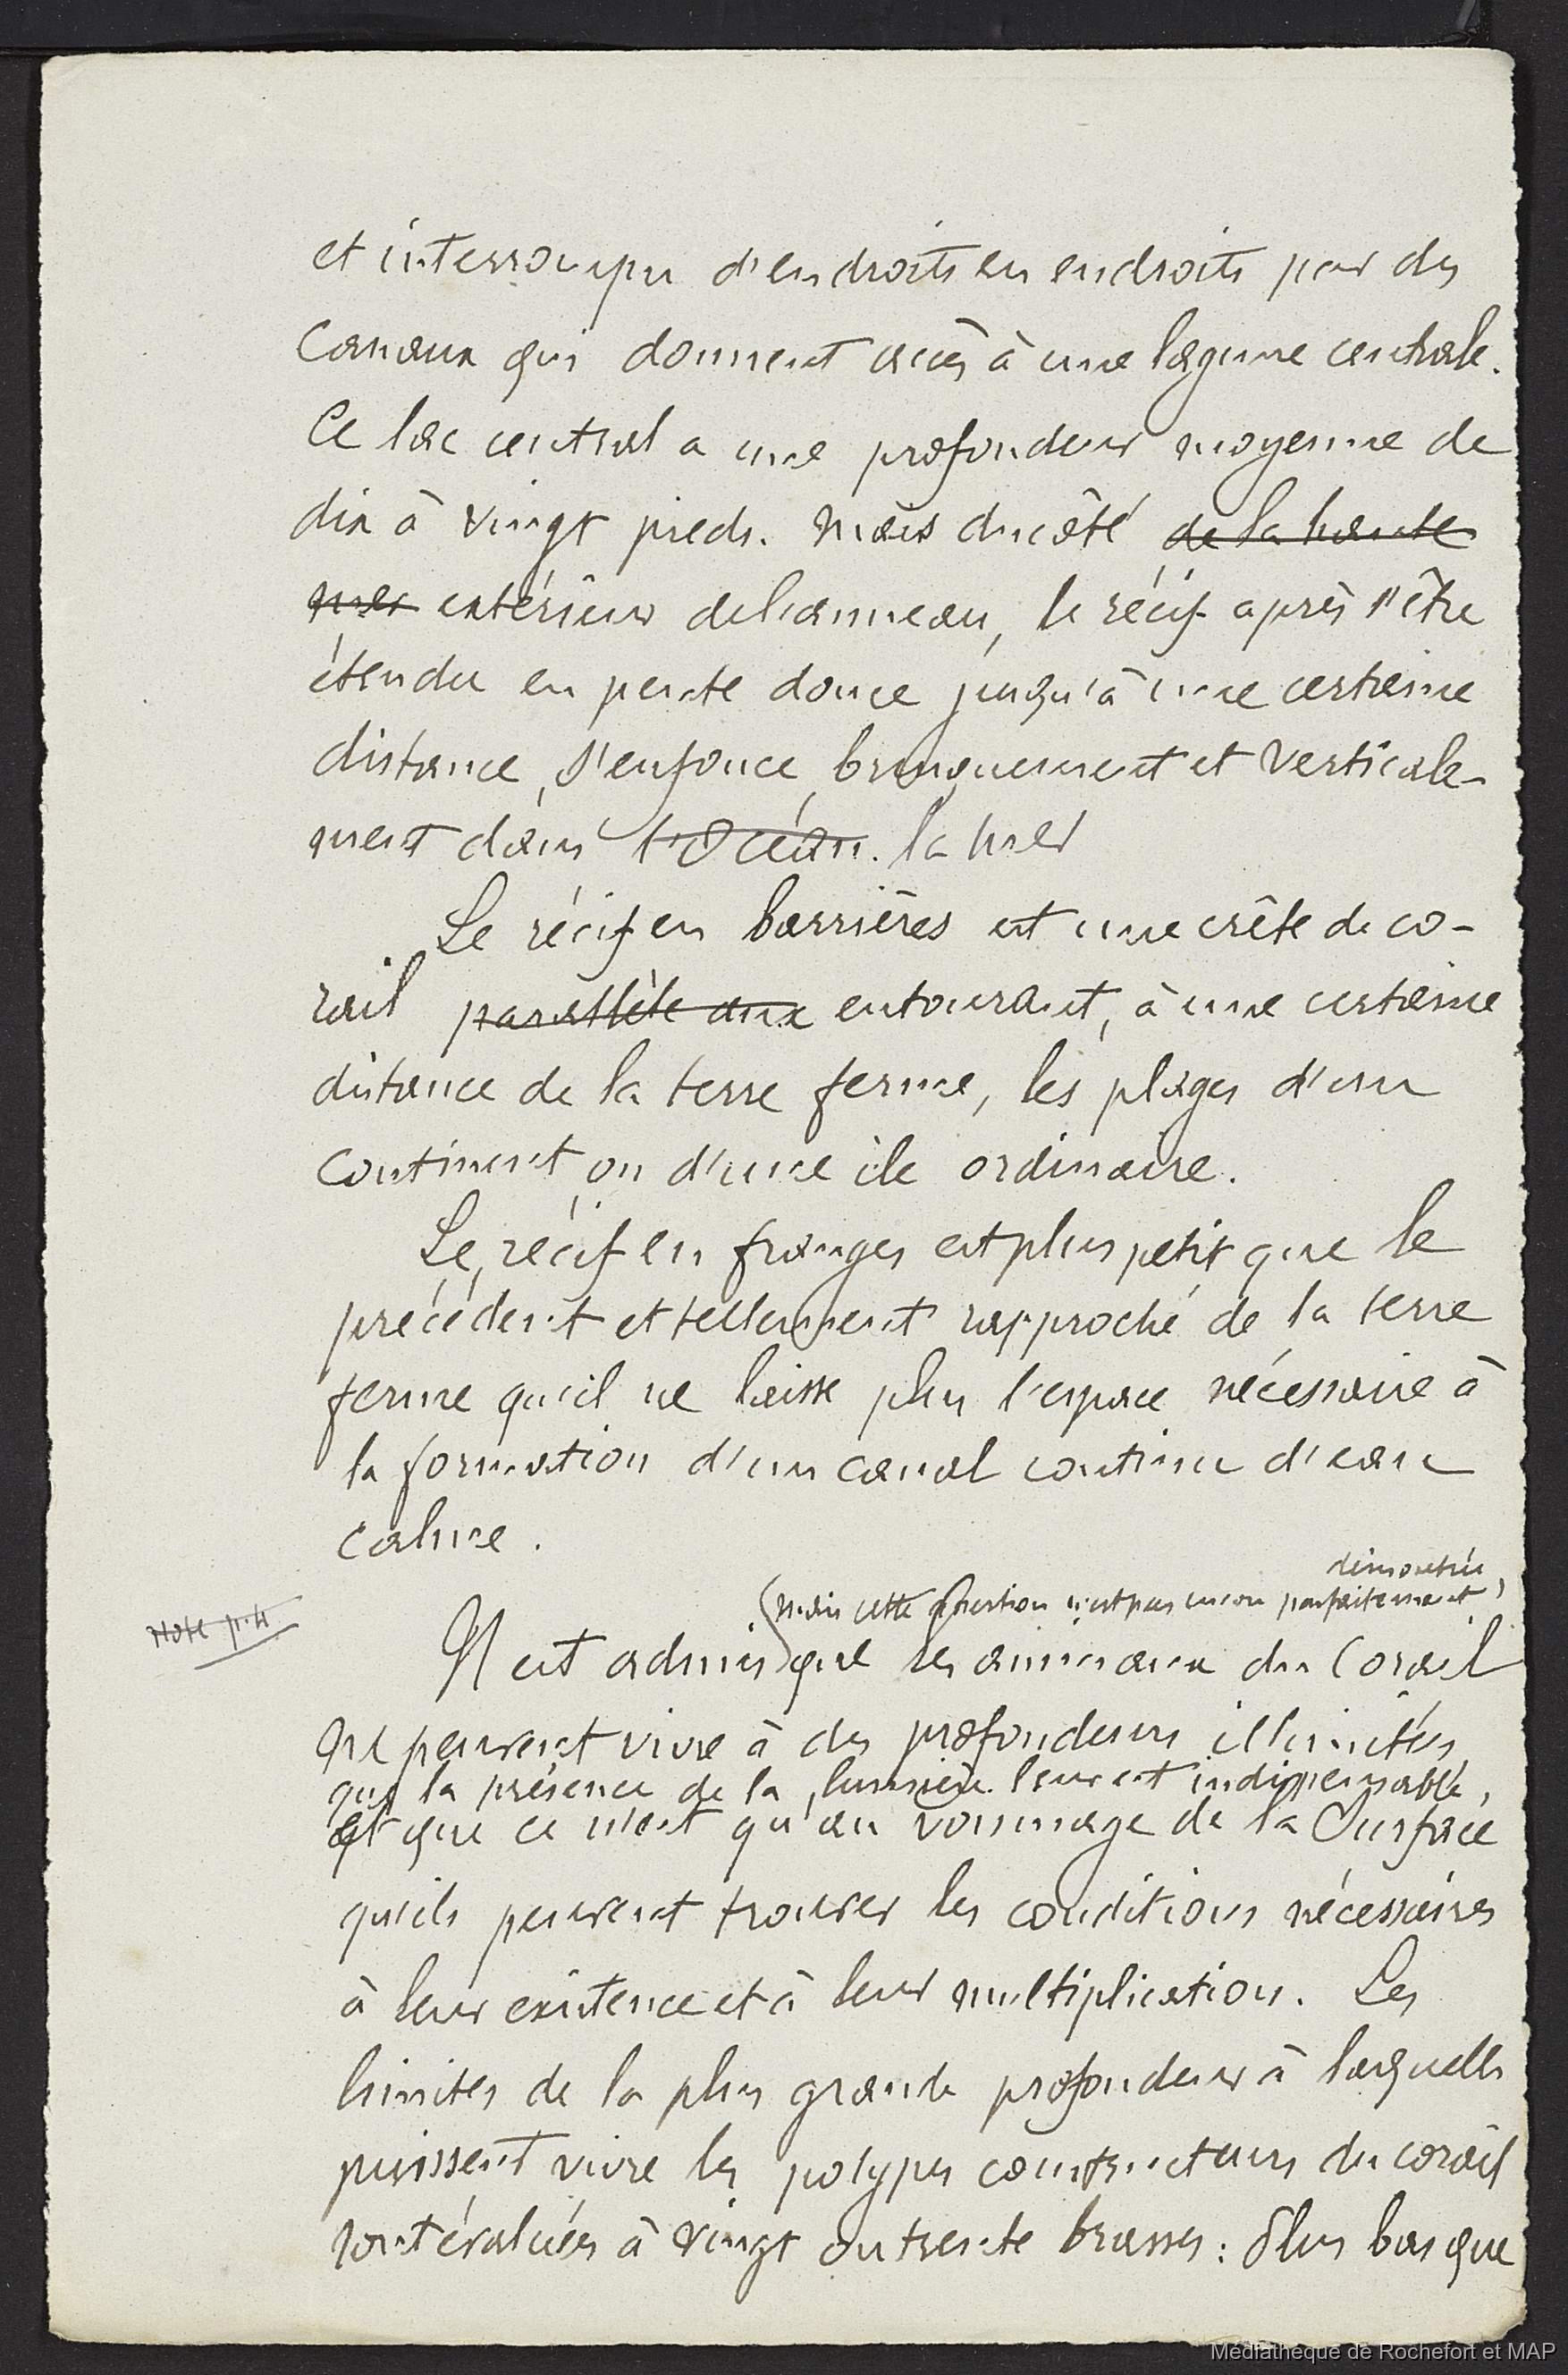 et interrompu d'endroits en endroits par des
Canaux qui donnent accès à une lagune centrale.
Ce lac central a une profondeur moyenne de
dix à vingt pieds. Mais du côté de la haute
mer extérieur de l'anneau, le récif après s'être
étendu en pente douce jusqu'à une certaine
distance, s'enfonce brusquement et verticale-
ment dans l'Océan. la mer
Le récif en barrières est une crête de co-
rail parallèle aux entourant, à une certaine
distance de la terre ferme, les plages d'un
Continent ou d'une île ordinaire.
Le récif en franges est plus petit que le
précédent et tellement rapproché de la terre
ferme qu'il ne laisse plus l'espace nécessaire à
la formation d'un canal continu d'eau
calme.
démontrée
(Mais cette question n'est pas encore parfaitement)
Note p. 4
Il est admis que les animaux du Corail
ne peuvent vivre à des profondeurs illimitées
que la présence de la lumière leur est indispensable,
et que ce n'est qu'au voisinage de la Surface
qu'ils peuvent trouver les conditions nécessaires
à leur existence et à leur multiplication. Les
limites de la plus grande profondeur à laquelle
puissent vivre les polypes constructeurs du corail
sont évaluées à vingt ou trente brasses : Plus bas que
Médiathèque de Rochefort et MAP